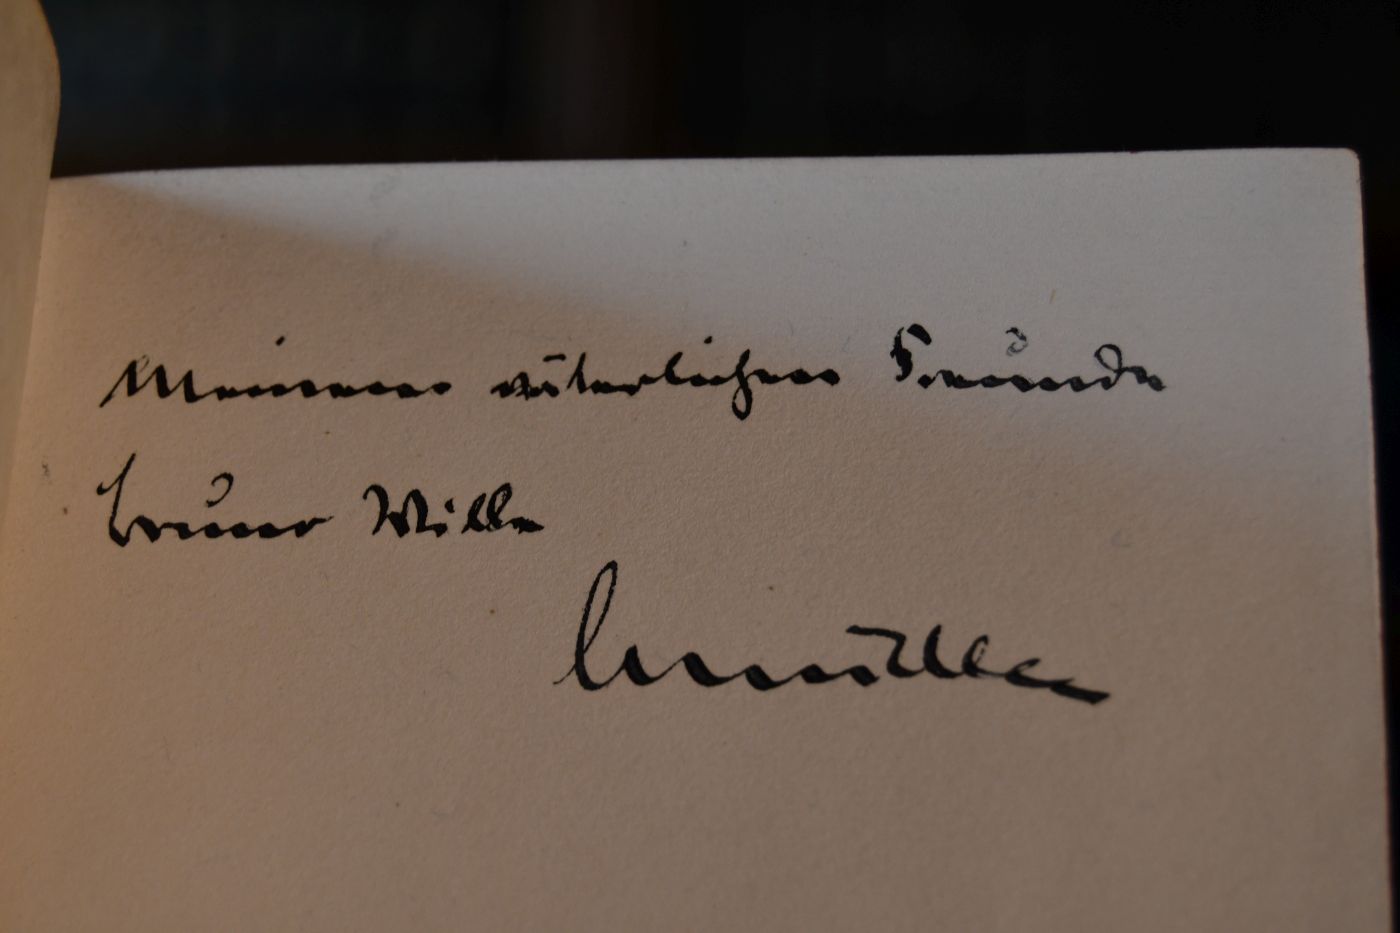 Meinem väterlichen Freunde
Bruno Wille